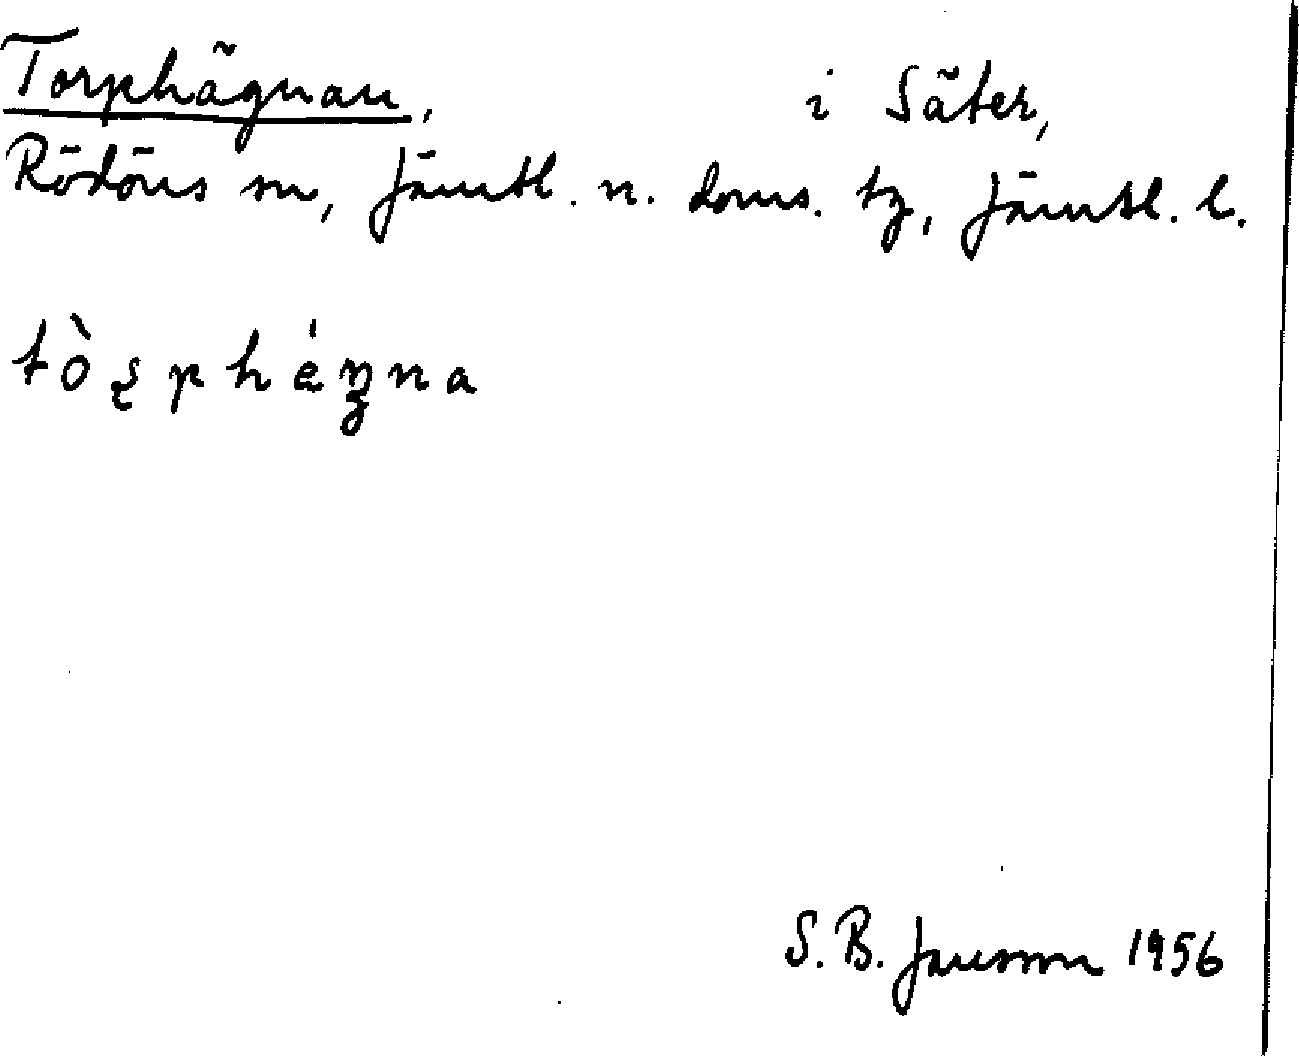 Torphägnan, i Säter,
Rödöns sn, Jämtl. n. doms. tg, Jämtl. l.
S. B. Jansson 1956